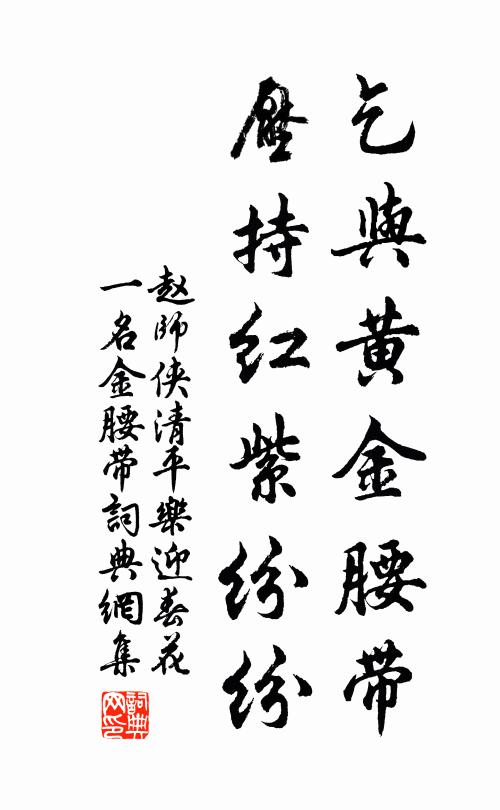 乞與黄金腰帶
壓持红紫紛紛
赵師侠清平樂迎春花
一名金腰带詞典網集
詞典网印